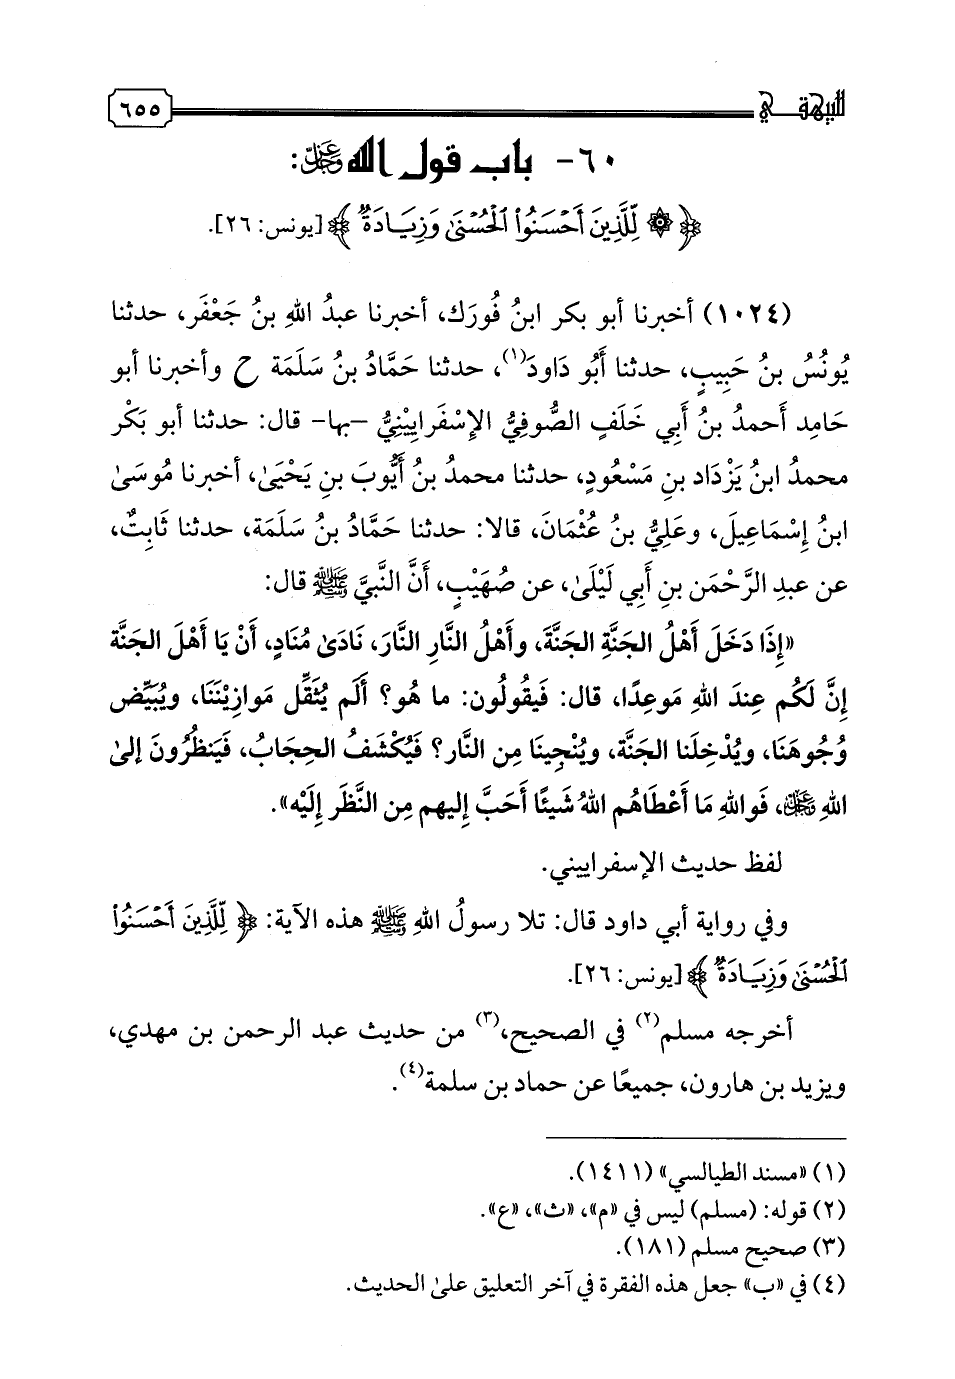 للبيهقي
٦٥٥
٦٠- باب قول الله ﷿:
﴿۞ لِّلَّذِينَ أَحۡسَنُواْ ٱلۡحُسۡنَىٰ وَزِيَادَةٞ﴾ [يونس: ٢٦].
(١٠٢٤) أخبرنا أبو بكر ابنُ فُورَك، أخبرنا عبدُ اللهِ بنُ جَعْفَر، حدثنا
يُونُسُ بنُ حَبِيبٍ، حدثنا أَبُو دَاودَ(١)، حدثنا حَمَّادُ بنُ سَلَمَة ح وأخبرنا أبو
حَامِد أَحمدُ بنُ أَبِي خَلَفٍ الصُّوفِيُّ الإِسْفَرايِيْنِيُّ -بها- قال: حدثنا أبو بَكْر
محمدُ ابنُ يَزْدَاد بنِ مَسْعُودٍ، حدثنا محمدُ بنُ أَيُّوبَ بنِ يَحْيَىٰ، أخبرنا مُوسَىٰ
ابنُ إِسْمَاعِيلَ، وعَلِيُّ بنُ عُثْمَانَ، قالا: حدثنا حَمَّادُ بنُ سَلَمَة، حدثنا ثَابِتٌ،
عن عبدِ الرَّحْمَن بنِ أَبِي لَيْلَىٰ، عن صُهَيْبٍ، أَنَّ النَّبِيَّ ﷺ قال:
«إِذَا دَخَلَ أَهْلُ الجَنَّةِ الجَنَّةَ، وأَهْلُ النَّارِ النَّارَ، نَادَىٰ مُنَادٍ، أَنْ يَا أَهْلَ الجَنَّة
إِنَّ لَكُم عِندَ اللهِ مَوعِدًا، قال: فَيقُولُون: ما هُو؟ أَلَم يُثَقِّل مَوازِيْنَنَا، ويُبَيِّض
وُجُوهَنَا، ويُدْخِلنا الجَنَّة، ويُنْجِينَا مِن النَّار؟ فَيُكْشَفُ الحِجَابُ، فَيَنظُرُونَ إلىٰ
اللهِ ﷿، فَواللهِ مَا أَعْطَاهُم اللهُ شَيئًا أَحَبَّ إِليهم مِن النَّظَر إِلَيْه».
لفظ حديث الإسفراييني.
وفي رواية أبي داود قال: تلا رسولُ اللهِ ﷺ هذه الآية: ﴿لِّلَّذِينَ أَحۡسَنُواْ
ٱلۡحُسۡنَىٰ وَزِيَادَةٞ﴾ [يونس: ٢٦].
أخرجه مسلم(٢) في الصحيح،(٣) من حديث عبد الرحمن بن مهدي،
ويزيد بن هارون، جميعًا عن حماد بن سلمة(٤).
(١) «مسند الطيالسي» (١٤١١).
(٢) قوله: (مسلم) ليس في «م»، «ث»، «ع».
(٣) صحيح مسلم (١٨١).
(٤) في «ب» جعل هذه الفقرة في آخر التعليق علىٰ الحديث.